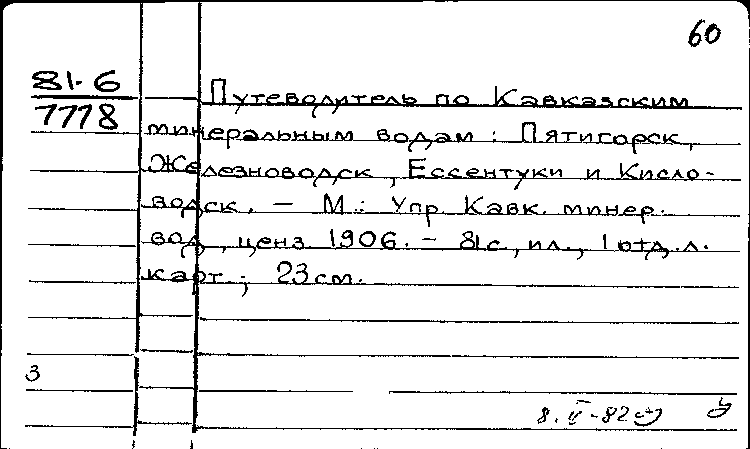 60
81-6
7778
Путеводитель по Кавказским
минеральным водам: Пятигорск,
Железноводск, Ессентуки и Кисло-
водск. — М.: Упр. Кавк. минер.
вод, ценз. 1906. — 81 с., ил., 1 отд. л.
карт.; 23 см.
3
8. V-82